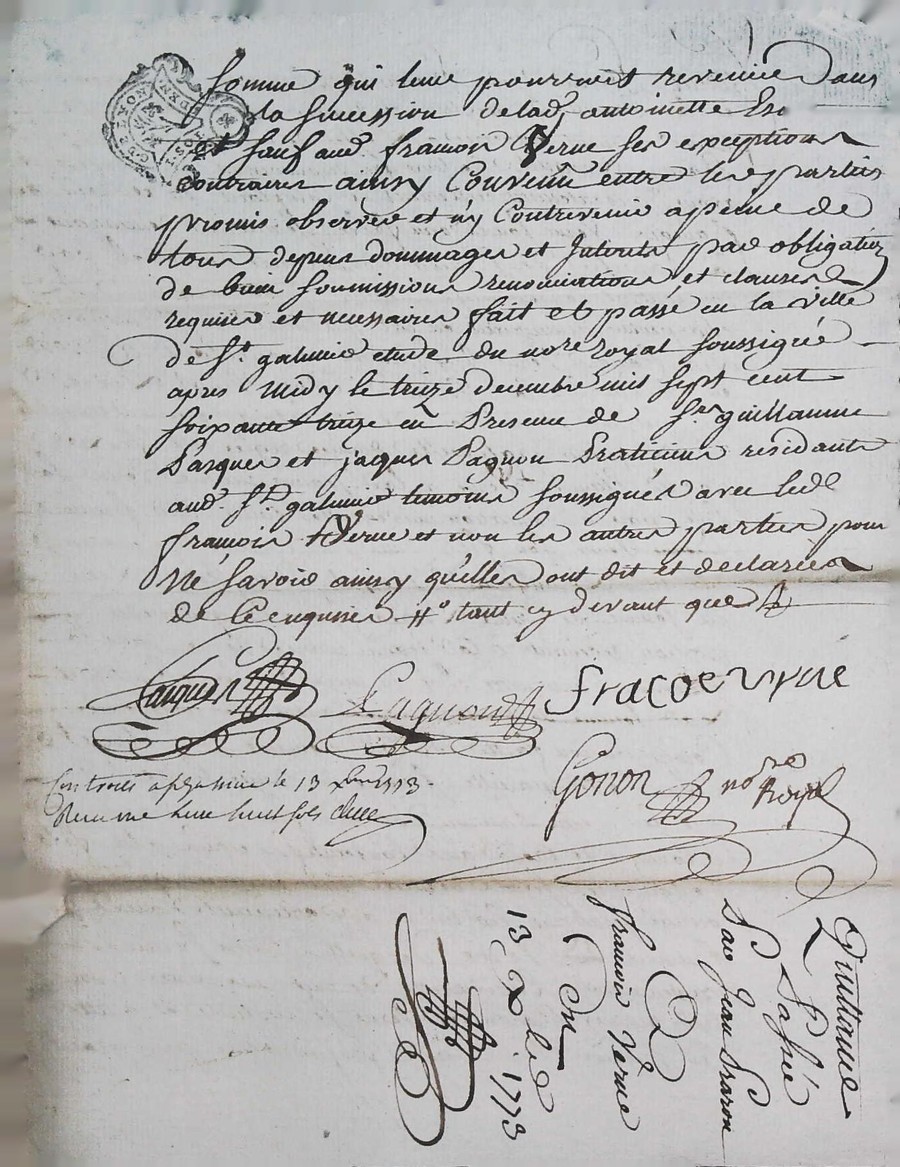 somme qui leur pourroit revenir dans
la succession de lad. antoinette
et sauf aud. francois Verne ses exceptions
contraires ainsy Convenu entre les parties
promis observer et n'y Contrevenir a peine de
tous depens dommages et Interets par obligation
de bien soumissions renonciations et clauses
requises et necessaires fait et passé en la ville
de St. galmier etude du nore royal soussigné
apres Midy le treize decembre mil sept cent
soixante treize en Presence de Sr. guillaume
Pasquer et jaques Pagnon Praticiens residants
aud. St. galmier temoins soussignés avec led.
francois Verne et non les autres parties pour
Ne savoir ainsy qu'elles ont dit et declaré
de Ce enquises tant cy devant que
Pagnon
fracoe verne
Gonon nore Royal
Controllé a St galmier le 13 xbre 1773.
Recu une livre huit sols
Quittance
Passée
Par Jean
A
francois Verne
En
13 xbre 1773